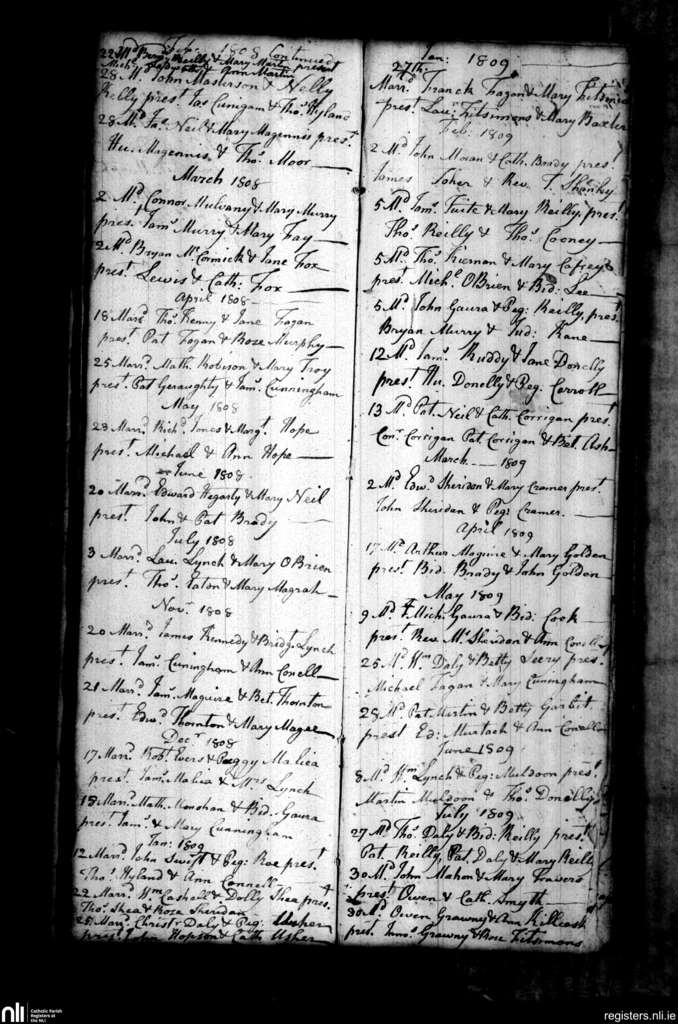 Feb: 1808 Continued
22 Md Bryan Reilly & Mary Mark present
Mich: & Ann Martin
28 Md John Masterson & Nelly
Kelly prest Jas Cunigam & Thos Hyland
28 Md Jas Neil & Mary Magennis prest
Hu. Magennis & Thos Moor
March 1808
2 Md Connor Mulvany & Mary Murry
prest Jams Murry & Mary Fay
2 Md Bryan McCormick & Jane Fox
prest Lewis & Cath: Fox
April 1808
18 Marrd Thos Kenny & Jane Fagan
prest Pat Fagan & Roze Murphy
25 Marrd Math. Robison & Mary Troy
prest Pat Geraughty & Jams Cunningham
May 1808
23 Marrd Richd Jones & Margt Hope
prest Michael & Ann Hope
June 1808
20 Marrd Edward Hegarty & Mary Neil
prest John & Pat Brady
July 1808
3 Marrd Lau. Lynch & Mary OBrien
prest Thos Eaton & Mary Magrah
Novr 1808
20 Marrd James Kennedy & Bridgt Lynch
prest Jams Cuningham & Ann Conell
21 Marrd Jams Maguire & Bet Thornton
prest Edwd Thornton & Mary Magee
Decr 1808
17 Marrd Robt Evers & Peggy Maliea
prest Jams Malica & Mrs Lynch
18 Marrd Math. Monohan & Bid. Gaura
prest Jams & Mary Cunningham
Jan: 1809
12 Marrd John Swift & Peg: Roe prest
Thos Hyland & Ann Connell
22 Marrd Wm Cashell & Dolly Shea prest
Thos Shea & Roze Sheridan
25 Marrd Christr Daly & Peg: Usher
prest John Hopson & Cath Usher
Jan: 1809
27th
Marrd Franck Fagan & Mary Fitsimons
prest Laur Fitsimons & Mary Baxter
Feb: 1809
2 Md John Moran & Cath. Brady prest
James Soher & Rev. T. Shanley
5 Md Jams Tuite & Mary Reilly prest
Thos Reilly & Thos Cooney
5 Md Thos Kiernan & Mary Cafrey
prest Michl OBrien & Bid: Lee
5 Md John Gaura & Peg: Reilly prest
Bryan Murry & Jud: Kane
12 Md Jams Ruddy & Jane Donelly
prest Hu. Donolly & Peg: Carroll
13 Md Pat. Neil & Cath. Corrigan prest
Conr Corrigan Pat Corrigan & Bet Ash
March 1809
2 Md Edwd Sheridan & Mary Cramer prest
John Sheridan & Peg: Cramer
April 1809
17 Md Arthur Maguire & Mary Golden
prest Bid. Brady & John Golden
May 1809
9 Md Mich: Gaura & Bid: Cook
prest Rev. Mr Sheridan & Ann Conelly
25 Md Wm Daly & Betty Seery prest
Michael Fagan & Mary Cuningham
28 Md Pat Martin & Betty Garbit
prest Ed: Murtach & Ann Conellan
June 1809
8 Md Wm Lynch & Peg: Muldoon prest
Martin Muldoon & Thos Donelly
July 1809
27 Md Thos Daly & Bid: Reilly prest
Pat Reilly, Pat. Daly & Mary Reilly
30 Md John Mahon & Mary Travers
prest Owen & Cath. Smyth
30 Md Owen Grawny & Ann Killcash
prest Grawny & Rose Fitsimons
nli
Catholic Parish
Registers at
the NLI
registers.nli.ie